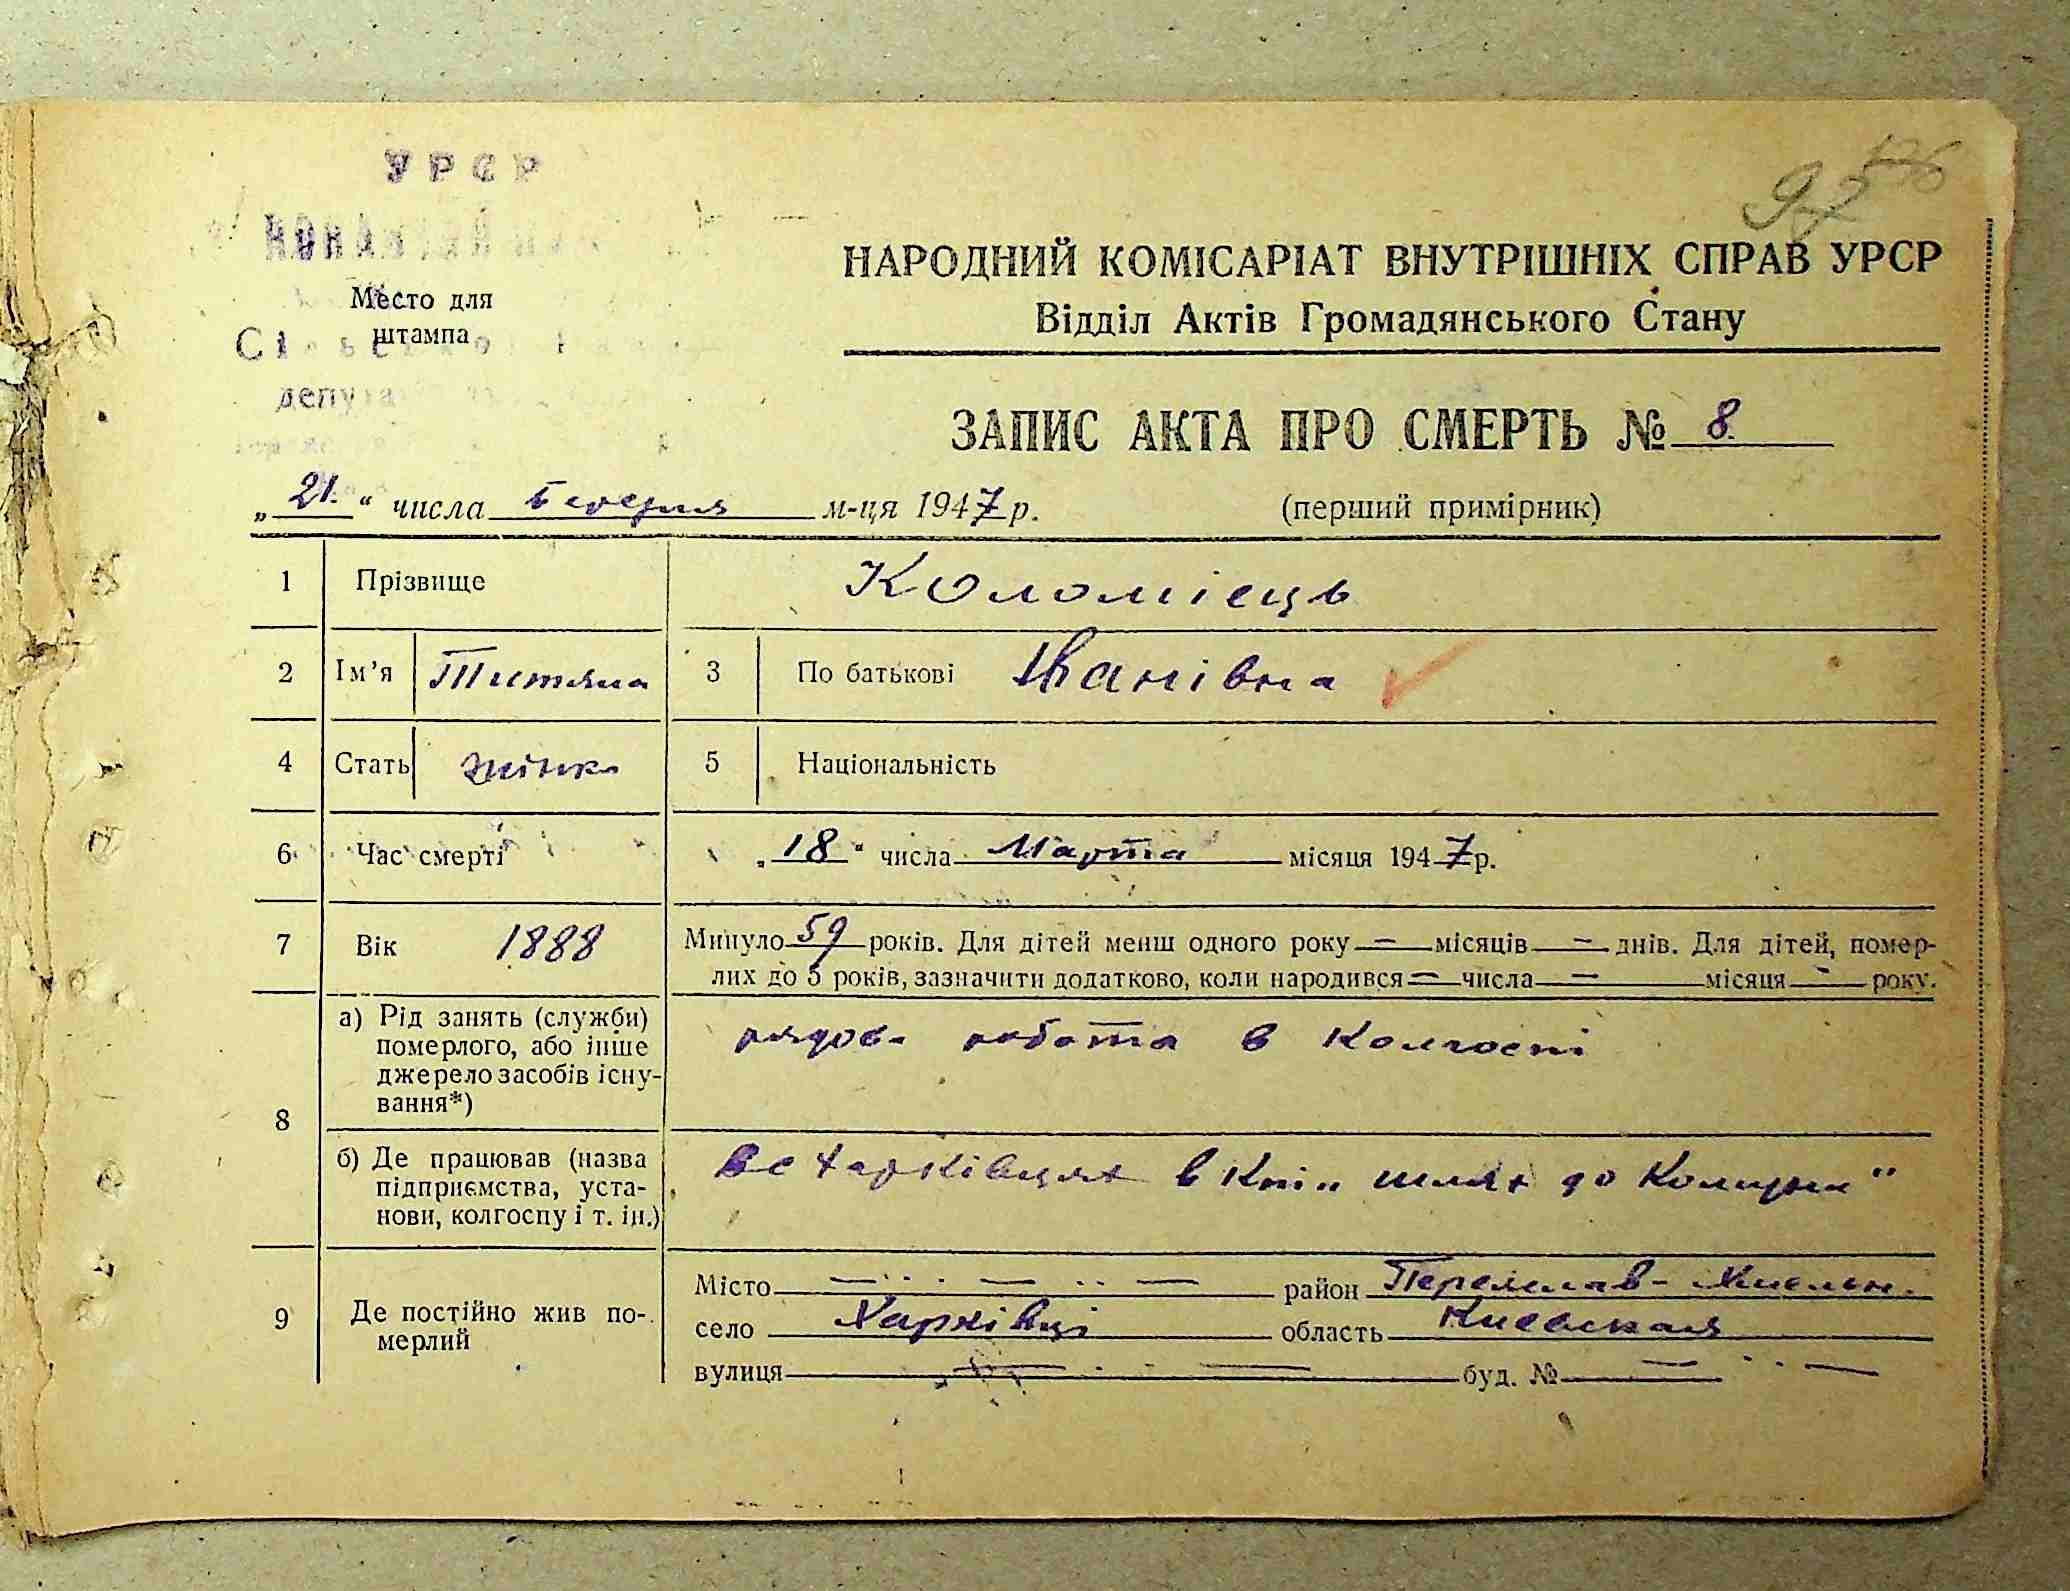 УРСР
97
НАРОДНИЙ КОМІСАРІАТ ВНУТРІШНІХ СПРАВ УРСР
Место для
штампа
Відділ Актів Громадянського Стану
ЗАПИС АКТА ПРО СМЕРТЬ № 8.
„21.“ числа березня м-ця 1947 р. (перший примірник)
1 Прізвище Коломієць
2 Ім'я Титяна 3 По батькові Іванівна
4 Стать жінка 5 Національність
6 Час смерті „18“ числа Марта місяця 1947 р.
7 Вік 1888 Минуло 59 років. Для дітей менш одного року — місяців — днів. Для дітей, помер-
лих до 5 років, зазначити додатково, коли народився — числа — місяця — року.
8 а) Рід занять (служби) померлого, або інше джерело засобів існу-вання*) рядова робота в колгоспі
б) Де працював (назва підприємства, уста-нови, колгоспу і т. ін.) в с Харківцях в к-пі „шлях до Комуни“
9 Де постійно жив по-мерлий
Місто — район Переяслав-Хмельн.
село Харківці область Киевская
вулиця — буд. № —